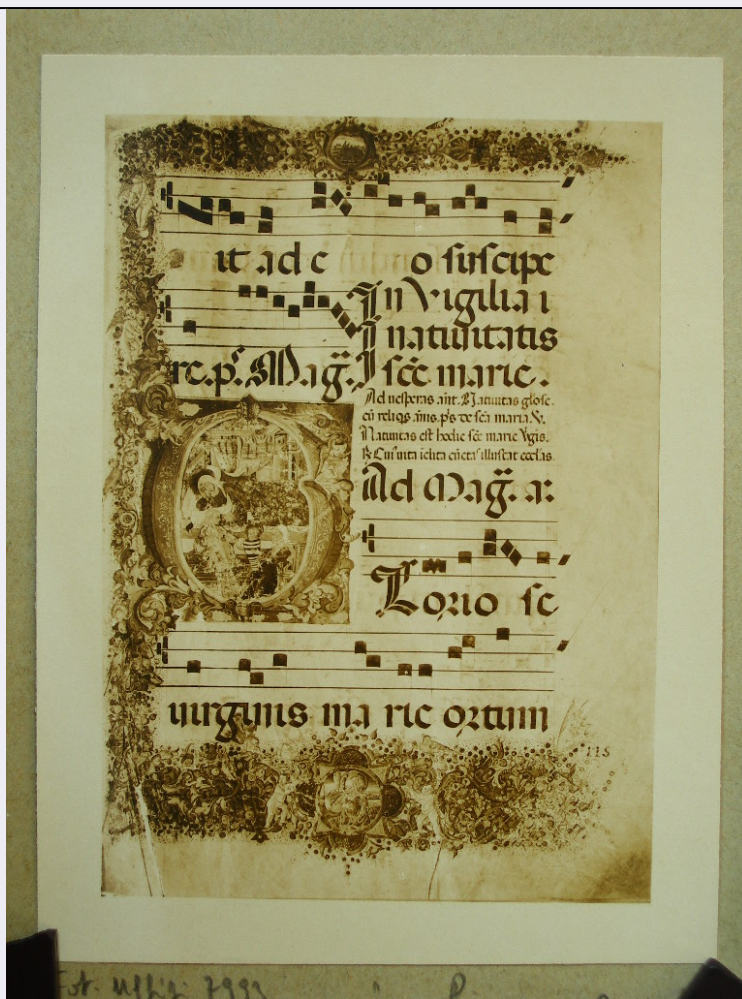 it ad e o suscipe
In Vigilia i
natiuitatis
re. ps. Mag̃. scẽ marie.
Ad uesperas añt. Natiuitas gľose.
cũ reliqs. añis. ps. de scã maria. V.
Natiuitas est hodie scẽ marie Vgis.
R Cuiͥ uita iclita cũctas illustrat ecclas.
Ad Mag̃. a:
Glorio se
uirginis ma rie ortum
115
Fot. Uffizi 7993